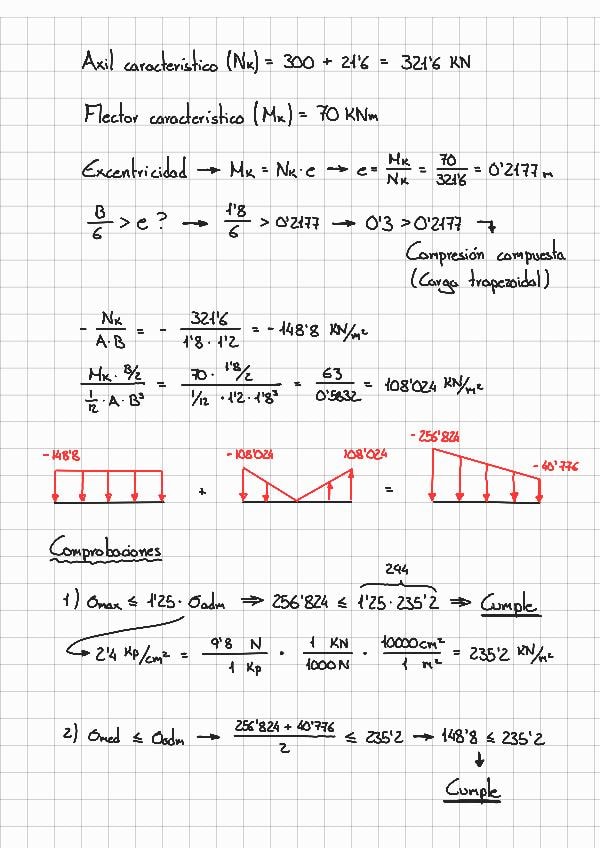 Axil característico (Nk) = 300 + 21'6 = 321'6 KN
Flector característico (Mk) = 70 KNm
Excentricidad → Mk = Nk · e → e = Mk/Nk = 70/321'6 = 0'2177 m
B/6 > e ? → 1'8/6 > 0'2177 → 0'3 > 0'2177 ↴
Compresión compuesta
(Carga trapezoidal)
- Nk/A·B = - 321'6/1'8 · 1'2 = - 148'8 KN/m²
Mk · B/2 / 1/12 · A · B³ = 70 · 1'8/2 / 1/12 · 1'2 · 1'8³ = 63/0'5832 = 108'024 KN/m²
- 148'8 + - 108'024 108'024 = - 256'824 - 40'776
Comprobaciones
294
1) σmax ≤ 1'25 · σadm ⇒ 256'824 ≤ 1'25 · 235'2 ⇒ Cumple
2'4 Kp/cm² = 9'8 N/1 Kp · 1 KN/1000 N · 10000 cm²/1 m² = 235'2 KN/m²
2) σmed ≤ σadm → 256'824 + 40'776/2 ≤ 235'2 → 148'8 ≤ 235'2
↓
Cumple